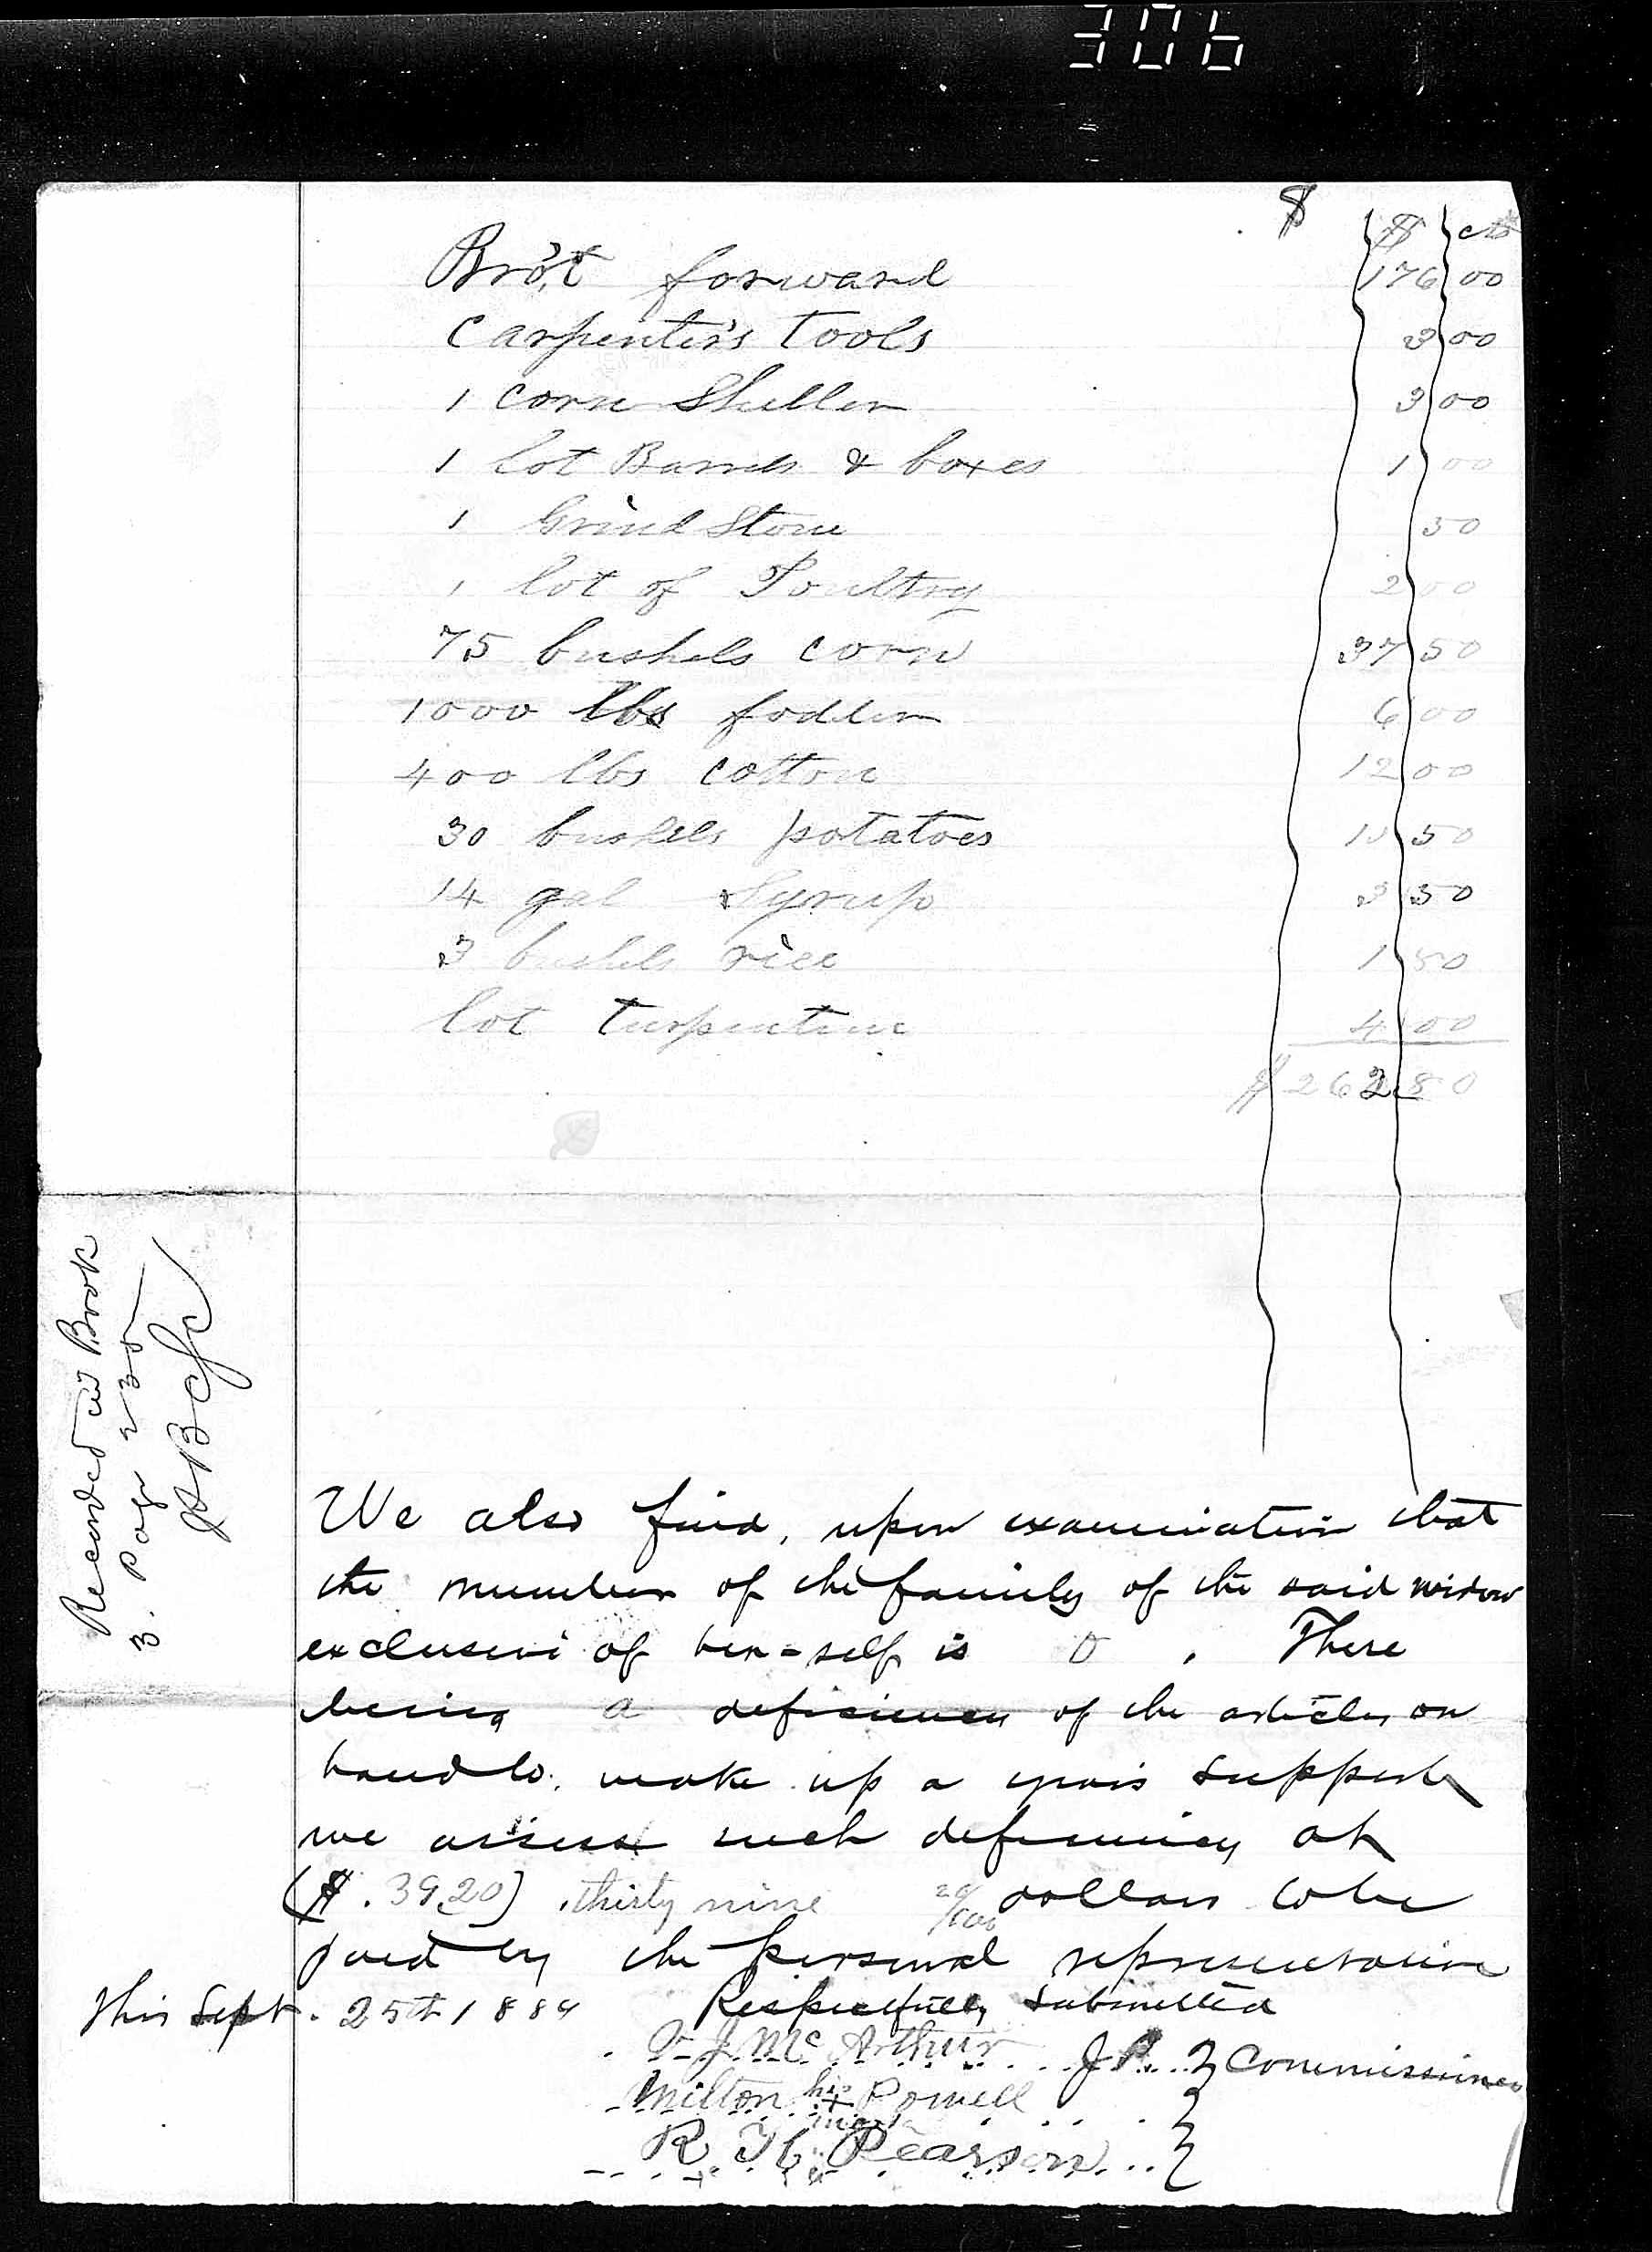 306
$
$ cts
Bro't forward 176 00
Carpenter's Tools 3 00
1 Corn Sheller 3 00
1 lot Barrels & boxes 1 00
1 Grind Stone 30
1 lot of Poultry 2 00
75 bushels corn 37 50
1000 lbs fodder 6 00
400 lbs cotton 12 00
30 bushels potatoes 50
14 gal Syrup 3 50
3 bushels rice 1 50
lot turpentine 4 00
$ 262 80
Recorded in Book
3. Page 235
We also find, upon examination that
the number of the family of the said widow
exclusive of her-self is 0 . There
being a deficiency of the articles on
hand to make up a years support
we assess such deficiency at
($ .39.20) thirty nine 20/100 dollars to be
paid by the personal representative
This Sept. 25th 1884 Respectfully submitted
J. McArthur J.P. } Commissioners
Milton his + mark Powell }
R H Pearson }